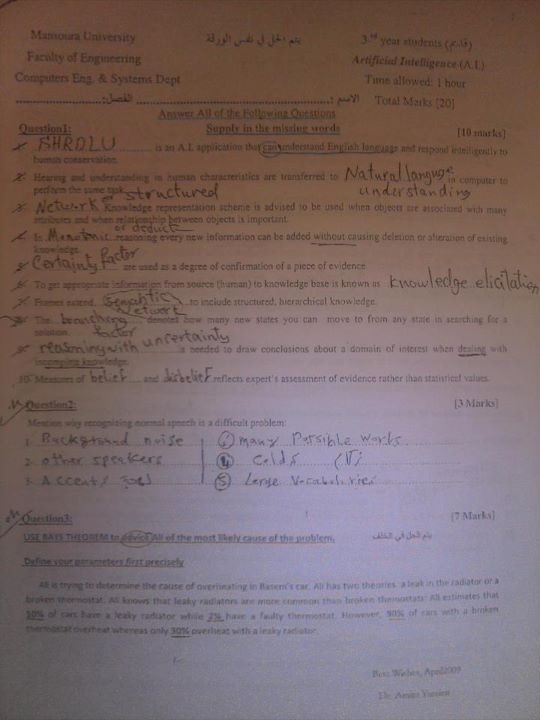 Mansoura University
يتم الحل في نفس الورقة
3.rd year students (قديم)
Faculty of Engineering
Artificial Intelligence (A.I.)
Computers Eng. & Systems Dept
Time allowed: 1 hour
الاسم: الفصل:
Total Marks [20]
Answer All of the Following Questions
Question1: Supply in the missing words [10 marks]
1. SHRDLU is an A.I. application that can understand English language and respond intelligently to
human conservation.
2. Hearing and understanding in human characteristics are transferred to Natural language understanding in computer to
perform the same task
3. Network or structured Knowledge representation scheme is advised to be used when objects are associated with many
attributes and when relationship between objects is important.
4. In Monotonic or deduct reasoning every new information can be added without causing deletion or alteration of existing
knowledge.
5. Certainty Factor are used as a degree of confirmation of a piece of evidence
6. To get appropriate information from source (human) to knowledge base is known as knowledge elicitation
7. Frames extend semantic network to include structured, hierarchical knowledge.
8. The branching factor denotes how many new states you can move to from any state in searching for a
solution
9. reasoning with uncertainty is needed to draw conclusions about a domain of interest when dealing with
incomplete knowledge.
10. Measures of belief and disbelief reflects expert's assessment of evidence rather than statistical values.
Question2: [3 Marks]
Mention why recognizing normal speech is a difficult problem:
1. Background noise 4 many Possible works
2. other speakers 4 Colds
3. Accents 5 Large Vocabularies
Question3: [7 Marks]
USE BAYS THEOREM to advice Ali of the most likely cause of the problem. يتم الحل في الخلف
Define your parameters first precisely
Ali is trying to determine the cause of overheating in Basem's car. Ali has two theories: a leak in the radiator or a
broken thermostat. Ali knows that leaky radiators are more common than broken thermostats: Ali estimates that
10% of cars have a leaky radiator while 2% have a faulty thermostat. However, 90% of cars with a broken
thermostat overheat whereas only 30% overheat with a leaky radiator.
Best Wishes, April2009
Dr.